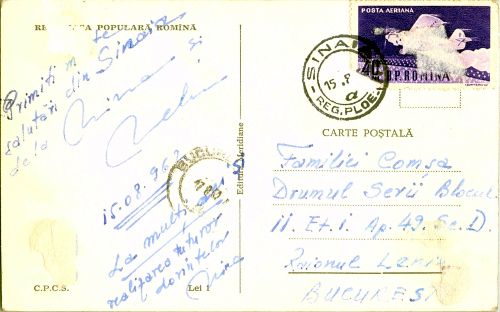 REPUBLICA POPULARĂ ROMÎNĂ
Primiti m te
salutări din Sinaia
dela Nina și
Nelu
15.08.962
La mulți ani și
realizarea tuturor
dorintelor
Nina
C.P.C.S.
Lei 1
Editura Meridiane
BUCUR
POSTA AERIANA
40
R.P.ROMINA
SINAIA
15.8
a
REG. PLOE
CARTE POȘTALĂ
Familiei Comșa
Drumul Serii Blocul
11. Et. 1. Ap. 49. Sc. D.
Raionul Lenin
BUCUREȘTI